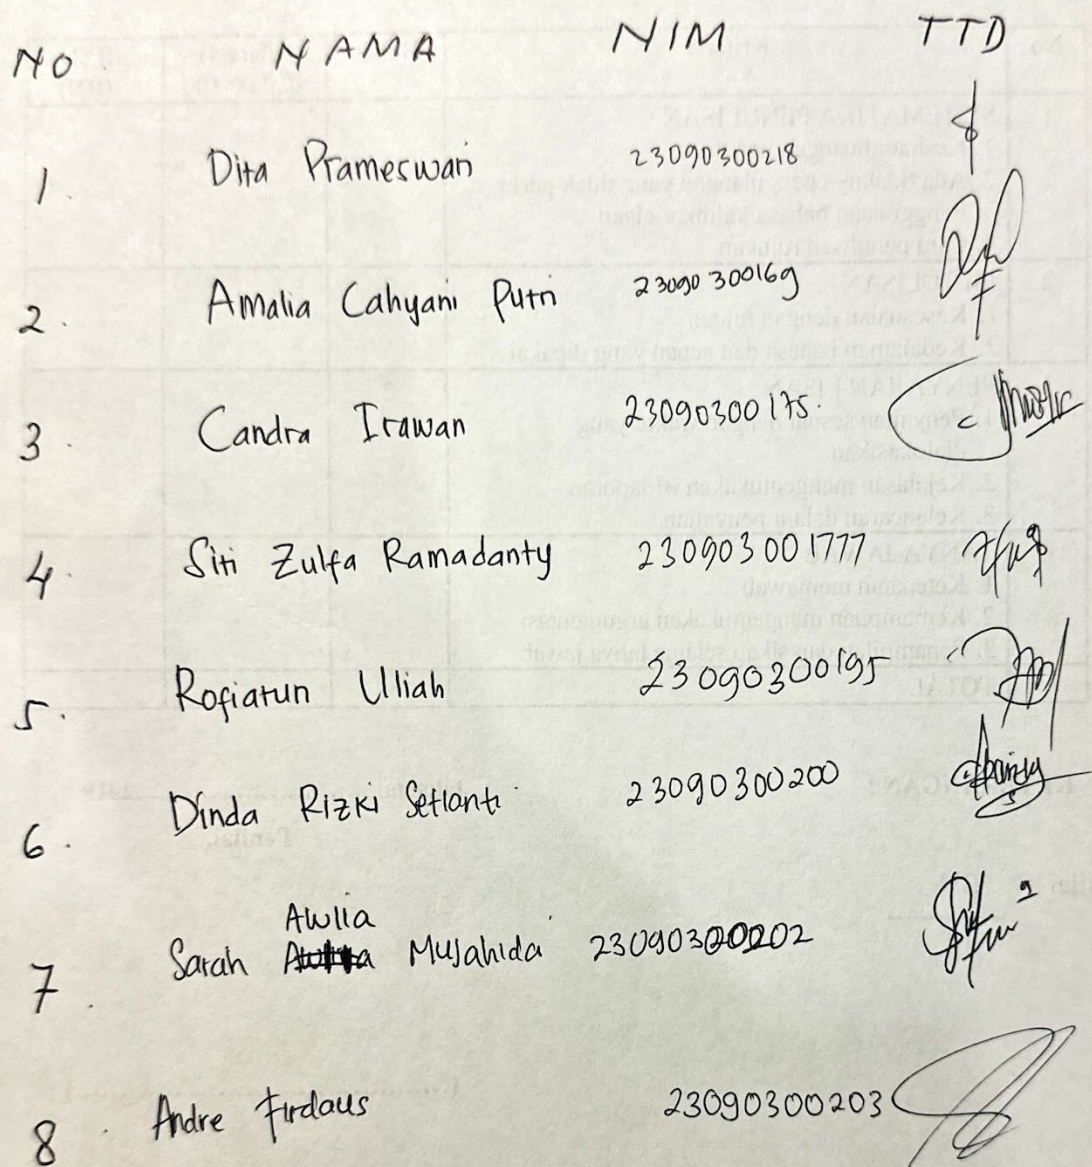 NO NAMA NIM TTD
1. Dita Prameswari 23090300218
2. Amalia Cahyani Putri 23090300169
3. Candra Irawan 23090300175.
4. Siti Zulfa Ramadanty 230903001777
5. Rofiatun Ulliah 23090300195
6. Dinda Rizki Setianti 23090300200
Awlia
7. Sarah Mujahida 23090300202
8. Andre Firdaus 23090300203